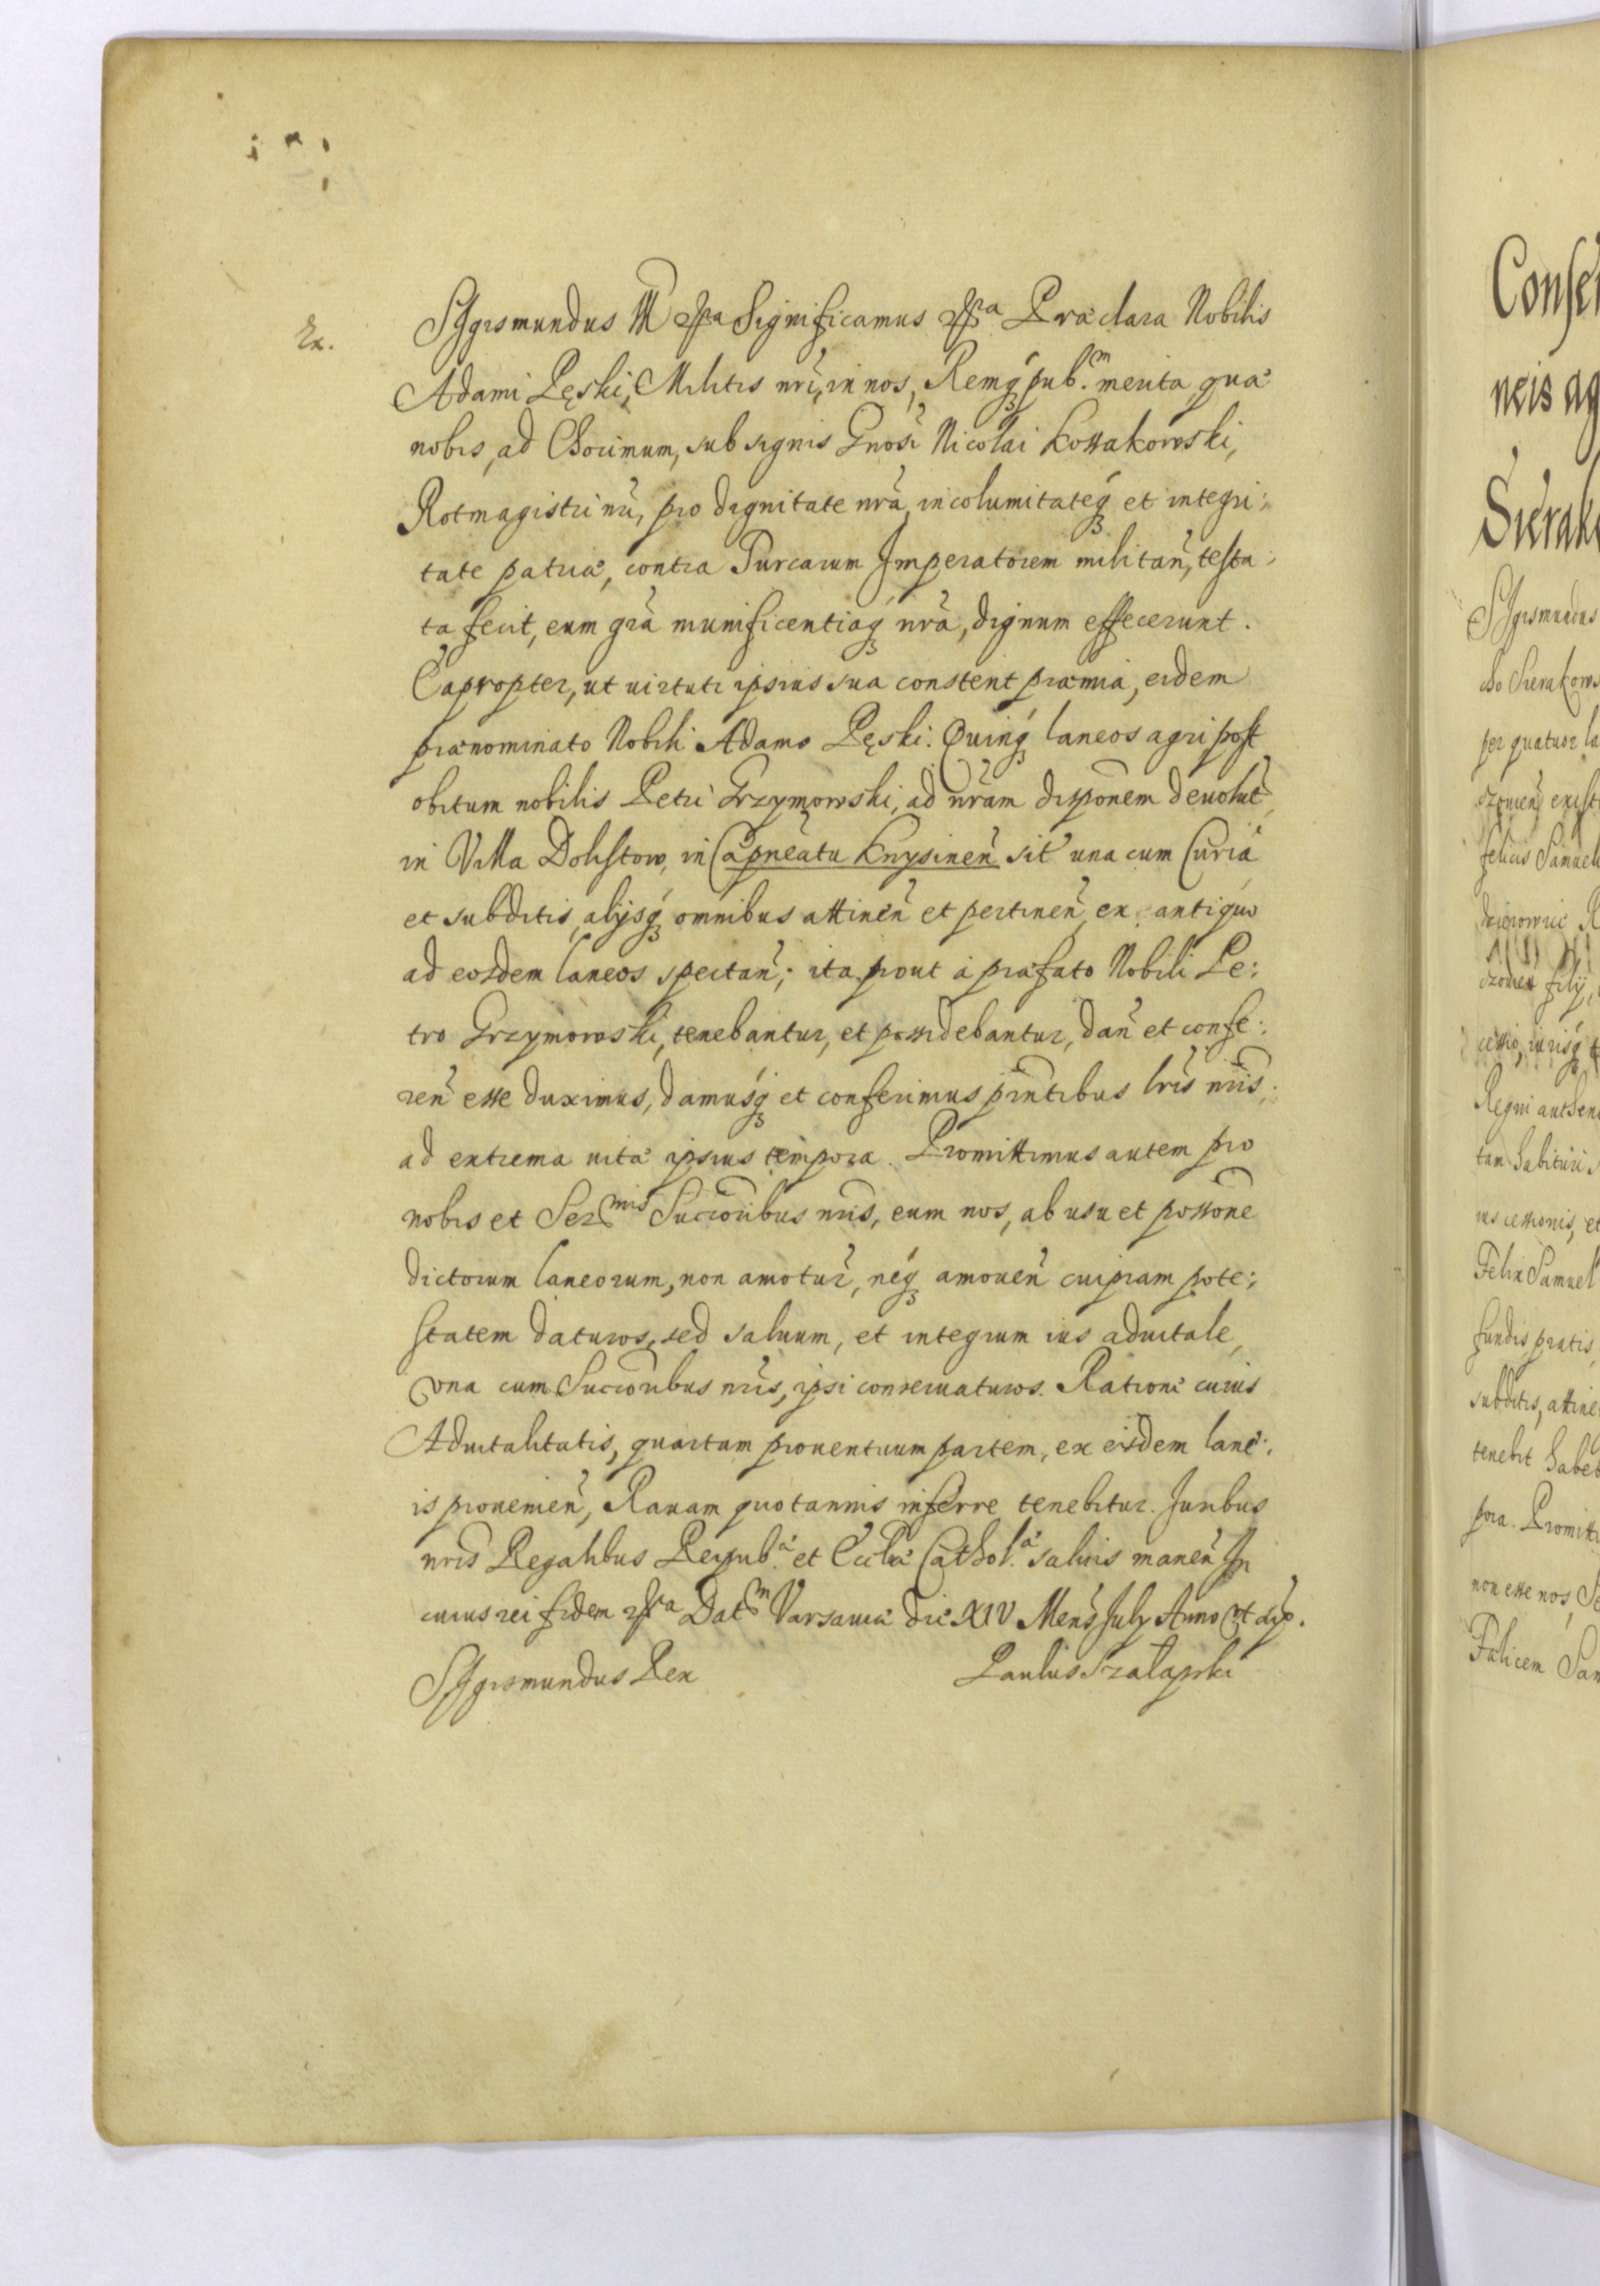 Ex.
Sigismundus III etcra Significamus etcra Præclara Nobilis
Adami Pęski, Militis nri, in nos, Remq3 pub.m merita, quæ
nobis, ad Chocimum, sub signis Gnosi Nicolai Kossakowski,
Rotmagistri nri, pro dignitate nra, incolumitateq3 et integri:
tate patriæ, contra Turcarum Imperatorem militan, testa:
ta fecit, eum gra munificentiaq3 nra, dignum effecerunt.
Eapropter, ut virtuti ipsius sua constent præmia, eidem
prænominato Nobili Adamo Pęski. Quinq3 laneos agri post
obitum nobilis Petri Grzymowski, ad nram disponem deuolut
in Villa Dolistow, in Capneatu Knysinen sit una cum Curia
et subditis, alijsq3 omnibus attinen et pertinen, ex antiquo
ad eosdem laneos spectan; ita prout à præfato Nobili Pe:
tro Grzymowski, tenebantur, et possidebantur, dan et confe:
ren esse duximus, damusq3 et conferimus pntibus lris nris;
ad extrema uitæ ipsius tempora. Promittimus autem pro
nobis et Ser.mis Succoribus nris, eum nos, ab usu et possone
dictorum laneorum, non amotur, neq3 amouen cuipiam pote:
statem daturos, sed saluum, et integrum ius aduitale,
vna cum Succoribus nris, ipsi conseruaturos. Ratione cuius
Aduitalitatis, quartam prouentuum partem, ex eisdem lane:
is prouenien, Rauam quotannis inferre tenebitur. Juribus
nris Regalibus Reipub.æ et Eccliæ Cathol.æ saluis manen In
cuius rei fidem etcra Dat.m Varsauiæ die XIV Mens July Anno vt sup.
Sigismundus Rex Paulus Szalapski
Consen
neis ag
Sierako
Sigismundus
cho Sierakows
per quatuor la
felicis Samuel
Regni authen
tam habituri
ius cessionis, et
Felix Samuel
fundis, pratis,
subditis, attine
tenebit habeb
pora. Promitti
non esse nos, Se
Fælicem Sam